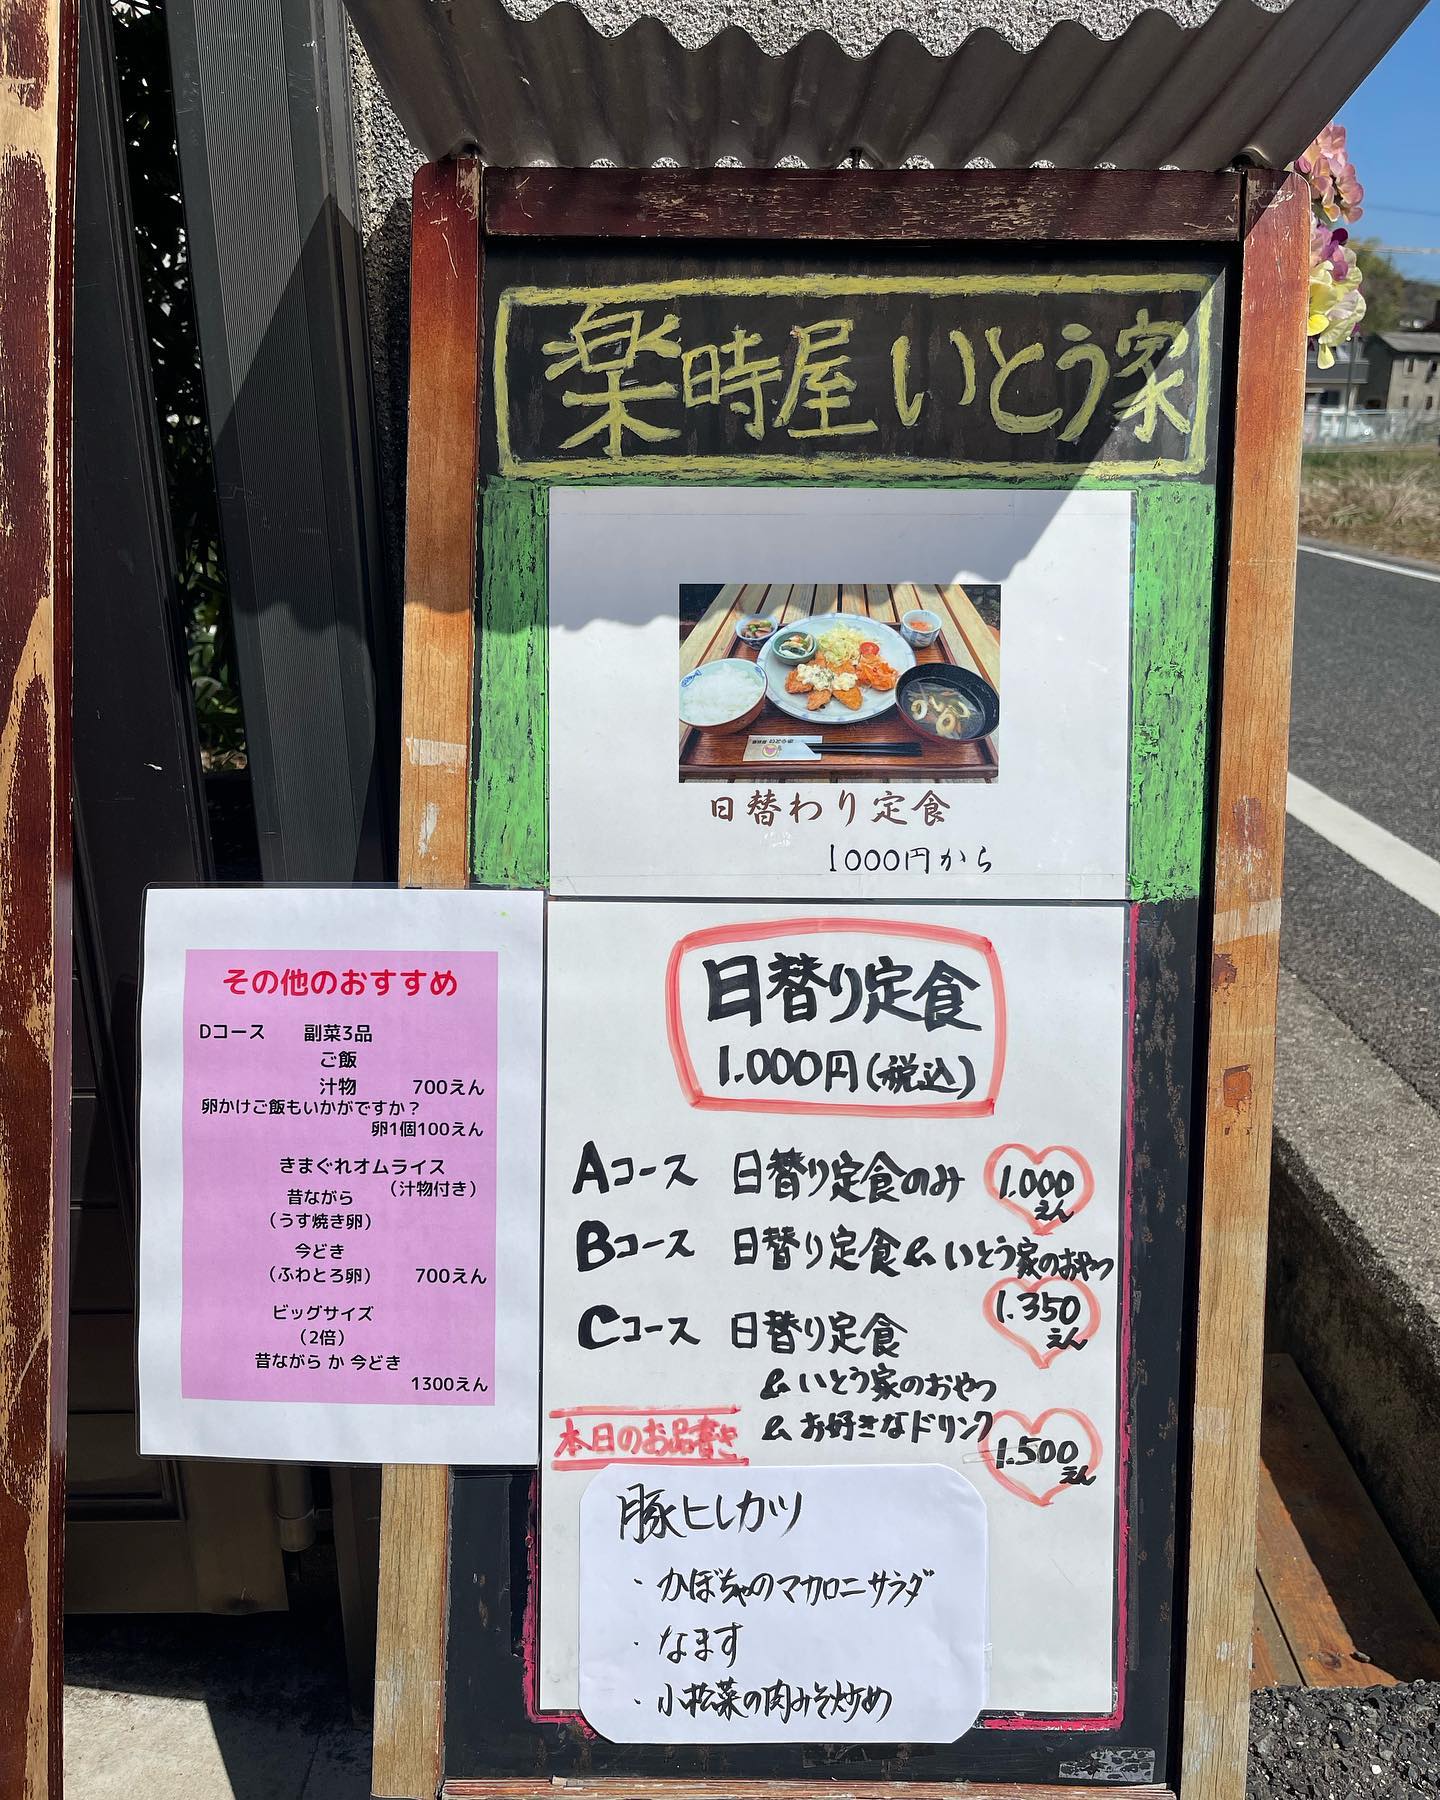 楽時屋 いとう家
日替わり定食
1000円から
日替り定食
1.000円(税込)
Aコース 日替り定食のみ 1.000えん
Bコース 日替り定食&いとう家のおやつ
1.350えん
Cコース 日替り定食
&いとう家のおやつ
&お好きなドリンク
1.500えん
本日のお品書き
豚ヒレカツ
・かぼちゃのマカロニサラダ
・なます
・小松菜の肉みそ炒め
その他のおすすめ
Dコース 副菜3品
ご飯
汁物 700えん
卵かけご飯もいかがですか?
卵1個100えん
きまぐれオムライス
(汁物付き)
昔ながら
(うす焼き卵)
今どき
(ふわとろ卵) 700えん
ビッグサイズ
(2倍)
昔ながら か 今どき
1300えん